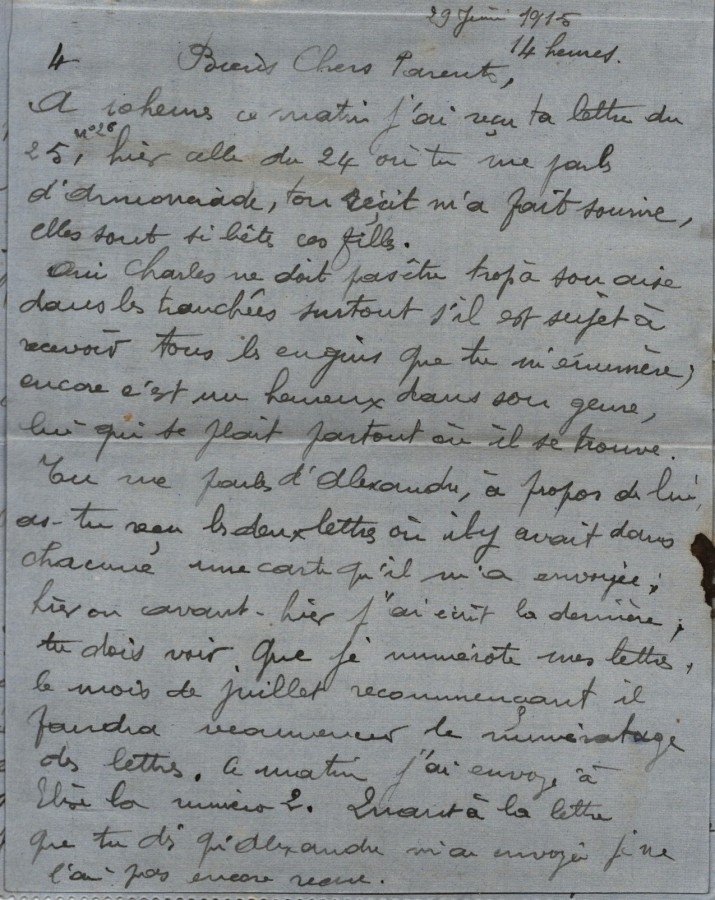 29 Juin 1915
14 heures.
4 Biens Chers Parents,
A 10 heures ce matin j'ai reçu ta lettre du
25, n° 26 hier celle du 24 où tu me parls
d', ton récit m'a fait sourire,
elles sont si bêtes ces filles.
Oui Charles ne doit pas être trop à son aise
dans les tranchées surtout s'il est sujet à
recevoir tous les engins que tu m'énumère ;
encore c'est un heureux dans son genre,
lui qui se plait partout où il se trouve.
Tu me parles d'Alexandre, à propos de lui,
as-tu reçu les deux lettres où il y avait dans
chacune une carte qu'il m'a envoyée ;
hier ou avant-hier j'ai écrit la dernière ;
tu dois voir que je numérote mes lettres,
le mois de juillet recommençant il
faudra recommencer le numérotage
des lettres. Ce matin j'ai envoyé à
la numéro 2. Quant à la lettre
que tu dis qu'Alexandre m'a envoyée je ne
l'ai pas encore reçue.